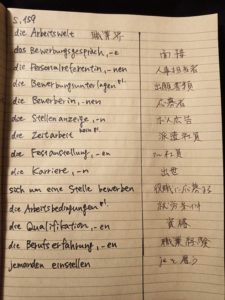 S. 159
die Arbeitswelt 職業界
das Bewerbungsgespräch, -e 面接
die Personalreferentin, -nen 人事担当者
die Bewerbungsunterlagen Pl. 出願書類
die Bewerberin, -nen 応募者
die Stellenanzeige, -n 求人広告
die Zeitarbeit 派遣社員
die Festanstellung, -en 正社員
die Karriere, -n 出世
sich um eine Stelle bewerben 役職に応募する
die Arbeitsbedingungen Pl. 労働条件
die Qualifikation, -en 資格
die Berufserfahrung, -en 職業経験
jemanden einstellen jeを雇う